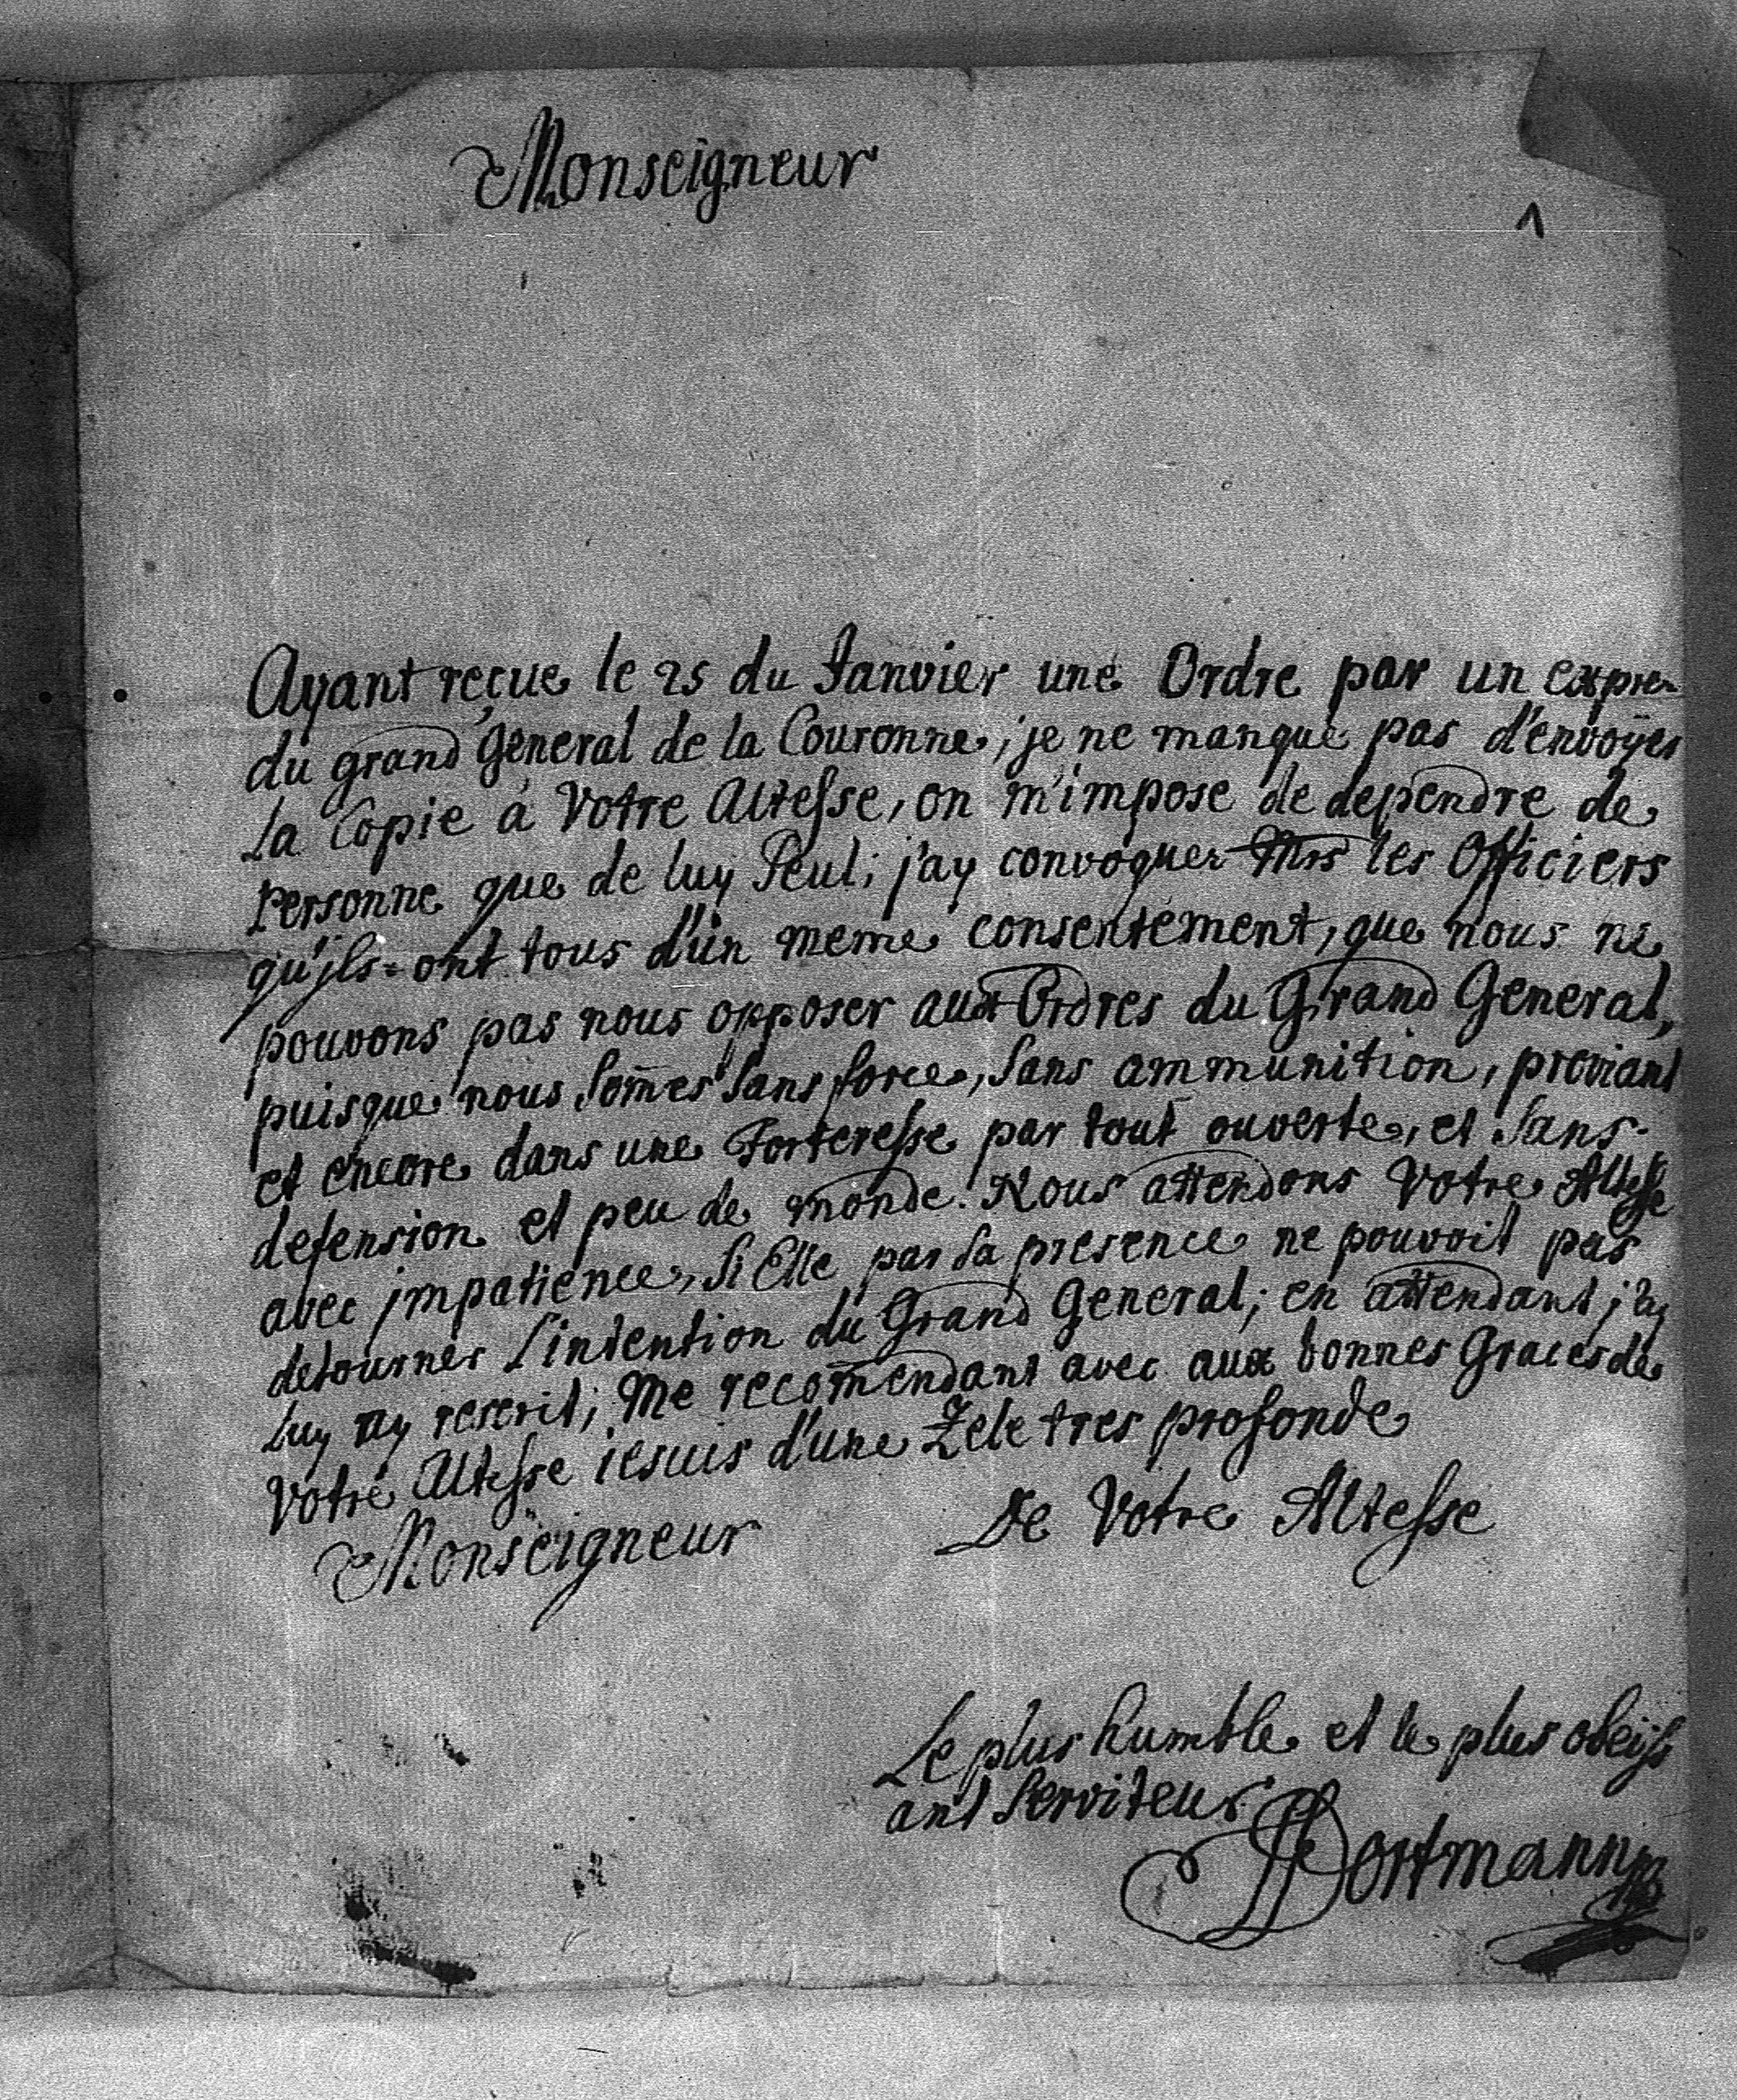 Monseigneur
Ayant reçue le 25 du Janvier une Ordre par un expres
du grand General de la Couronne, je ne manque pas d'envoÿer
La Copie à Votre Altesse, on m'impose de dependre de
Personne que de luy Seul; j'ay convoquer Mrs les Officiers
qu'jls=ont tous d'un meme consentement, que nous ne
pouvons pas nous opposer aux Ordres du Grand General,
puisque nous Som̃es Sans force, Sans ammunition, proviant
et encore dans une Forteresse par tout ouverte, et Sans
defension et peu de monde. Nous attendons Votre Altesse
avec jmpatience, Si Elle par Sa presence ne pouvoit pas
detourner L'intention du Grand General; en attendant j'ay
Luy ay rescrit; Me recom̃endant avec aux bonnes Graces de
Votre Altesse iesuis d'une Zele tres profonde
Monseigneur De Votre Altesse
Le plus humble et le plus obeiss
ant Serviteur
Dortmann